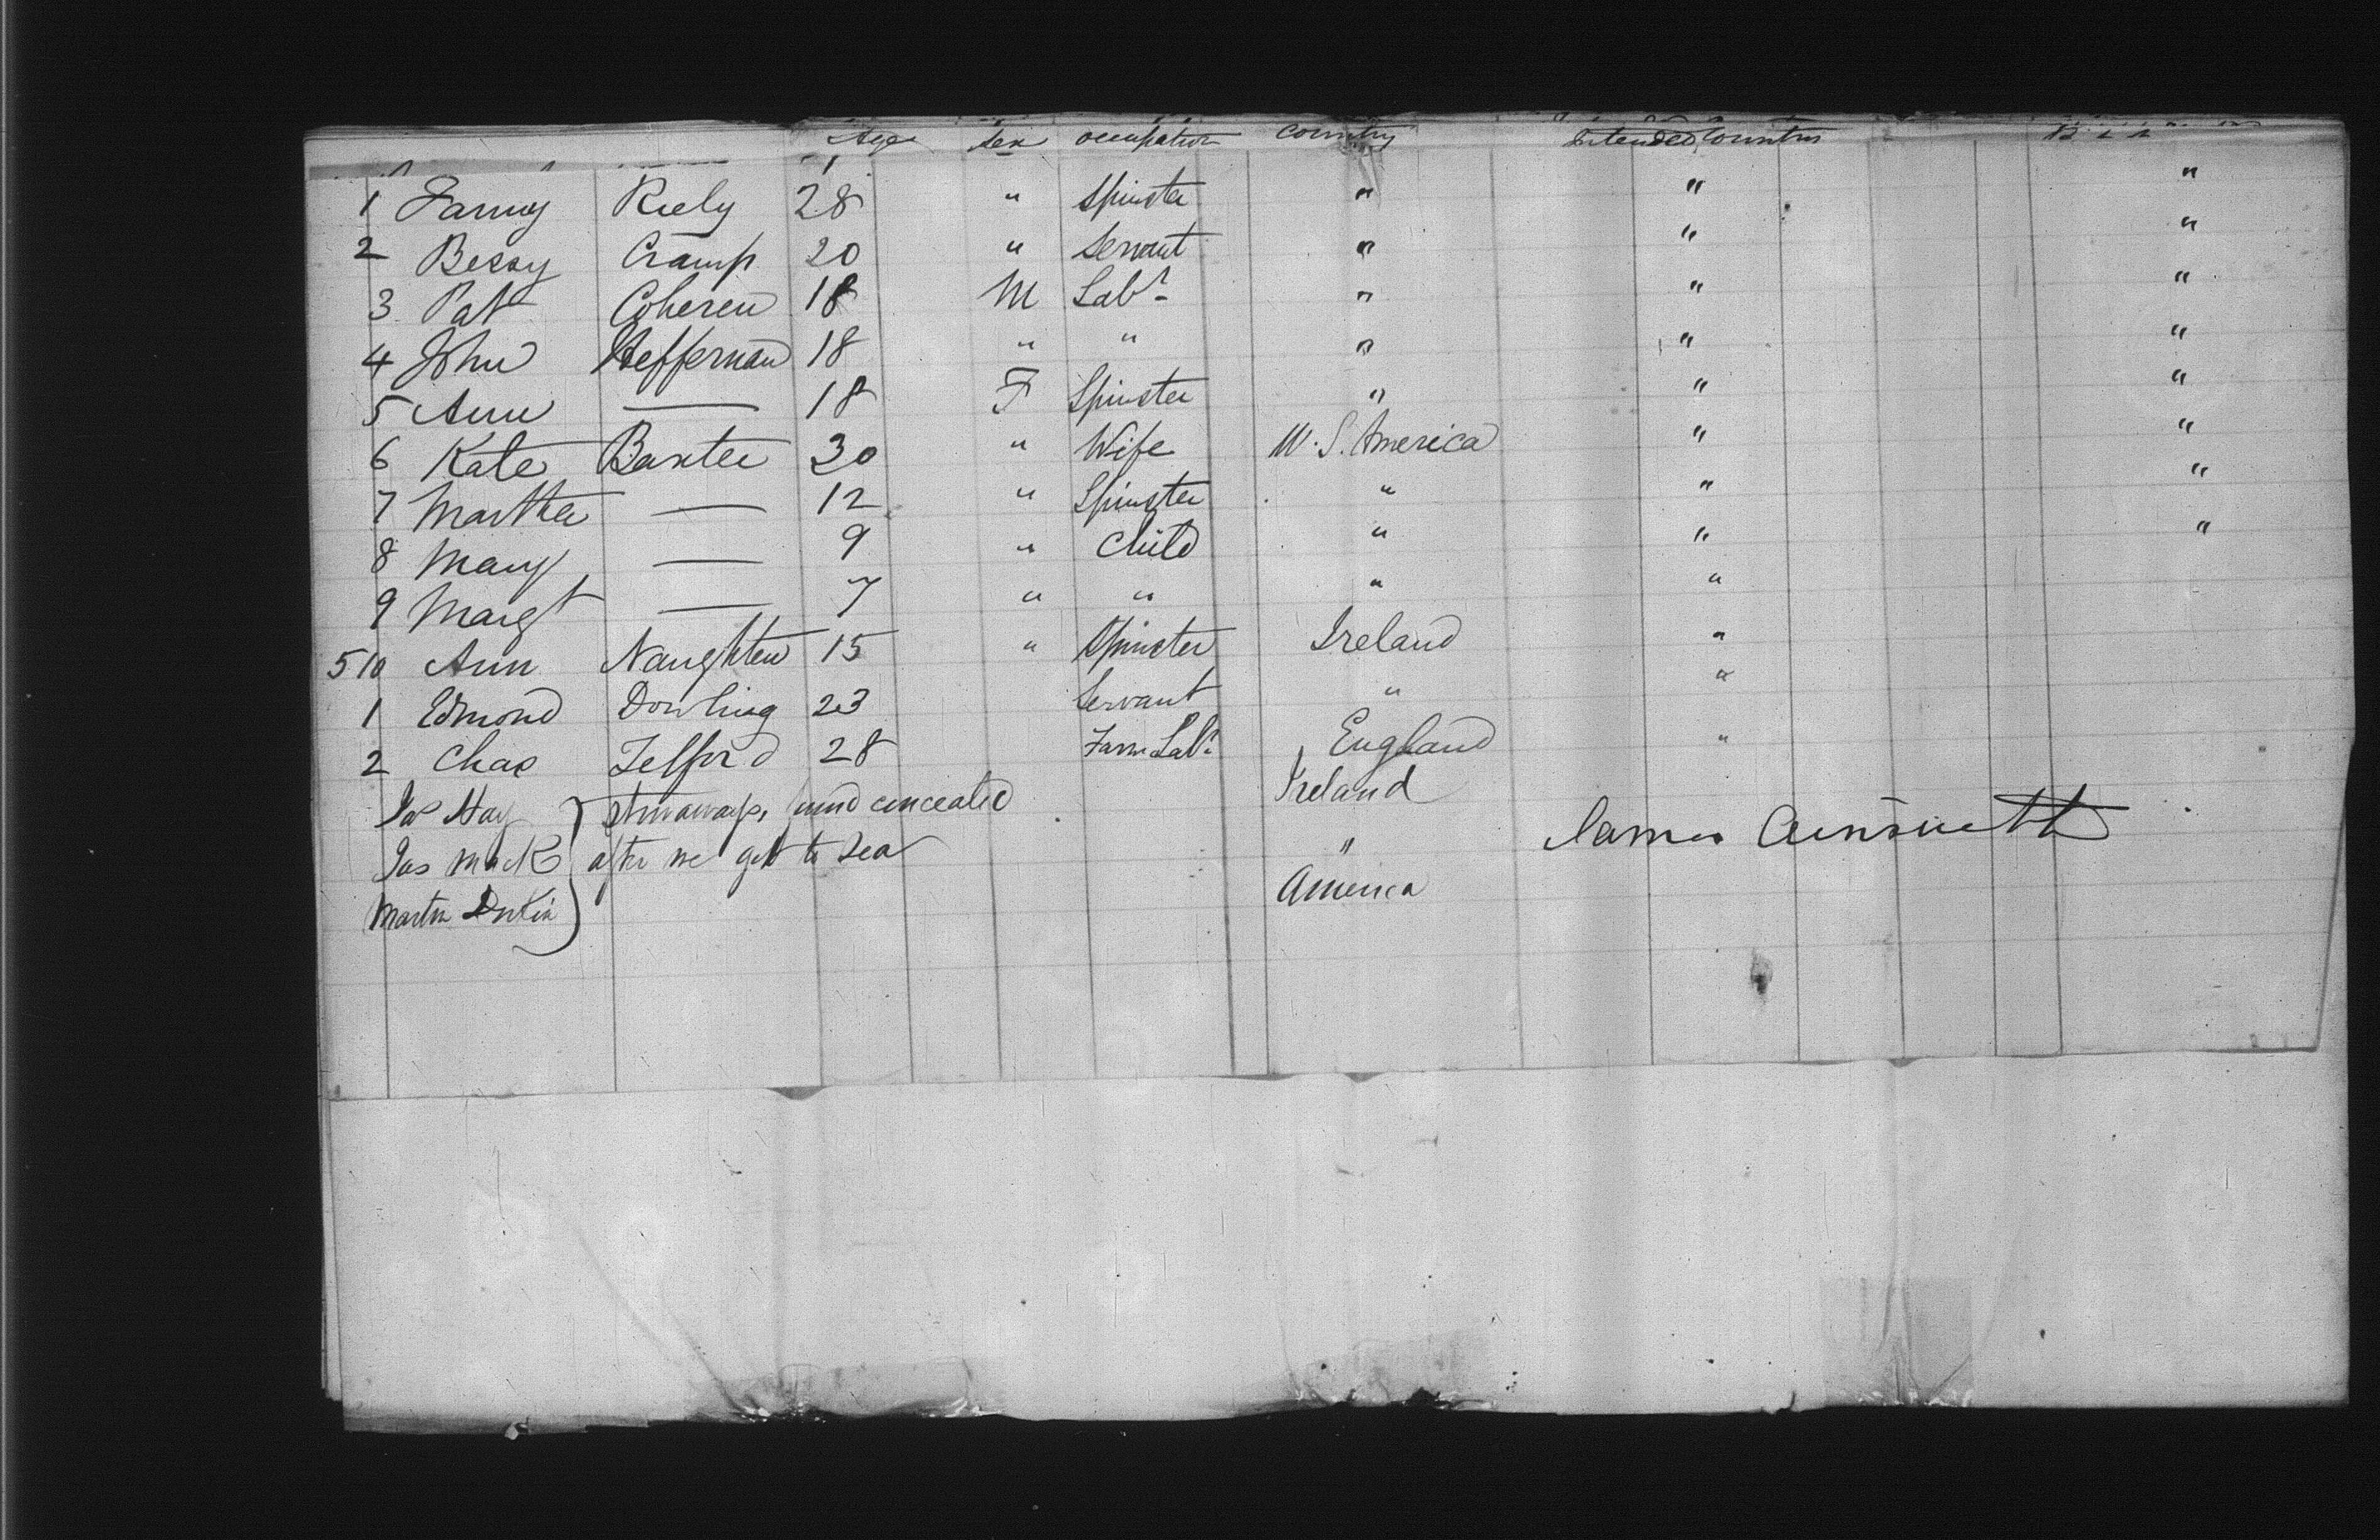 Age Sex Occupation Country Intended Country
1 Fanny Riely 28 " Spinster " " "
2 Bessy Cramp 20 " Servant " " "
3 Pat Coheren 18 M Labr " " "
4 John Heffernan 18 " " " " "
5 Ann — 18 F Spinster " " "
6 Kate Baxter 30 " Wife U.S. America " "
7 Martha — 12 " Spinster " " "
8 Mary — 9 " Child " " "
9 Margt — 7 " " " "
510 Ann Naughten 15 " Spinster Ireland "
1 Edmond Dowling 23 Servant " "
2 Chas Telford 28 Farm Labr England "
Jas Hay } Stowaways, found concealed Ireland
Jas Mack } after we got to Sea " James
Martin Durkin } America